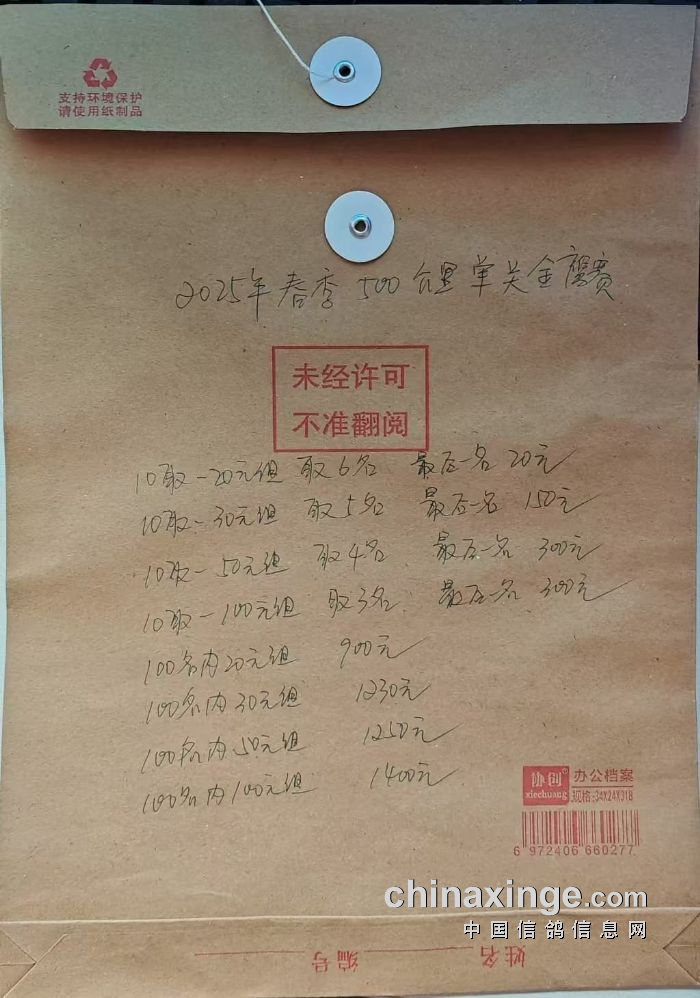 支持环境保护
请使用纸制品
2025年春季500公里单关金鹰赛
未经许可
不准翻阅
10取一20元组 取6名 最后一名 20元
10取一30元组 取5名 最后一名 150元
10取一50元组 取4名 最后一名 300元
10取一100元组 取3名 最后一名 300元
100名内20元组 900元
100名内30元组 1230元
100名内50元组 1250元
100名内100元组 1400元
协创® 办公档案
xiechuang 规格:34X24X318
6 972406 660277
chinaxinge.com
中国信鸽信息网
姓名 编号